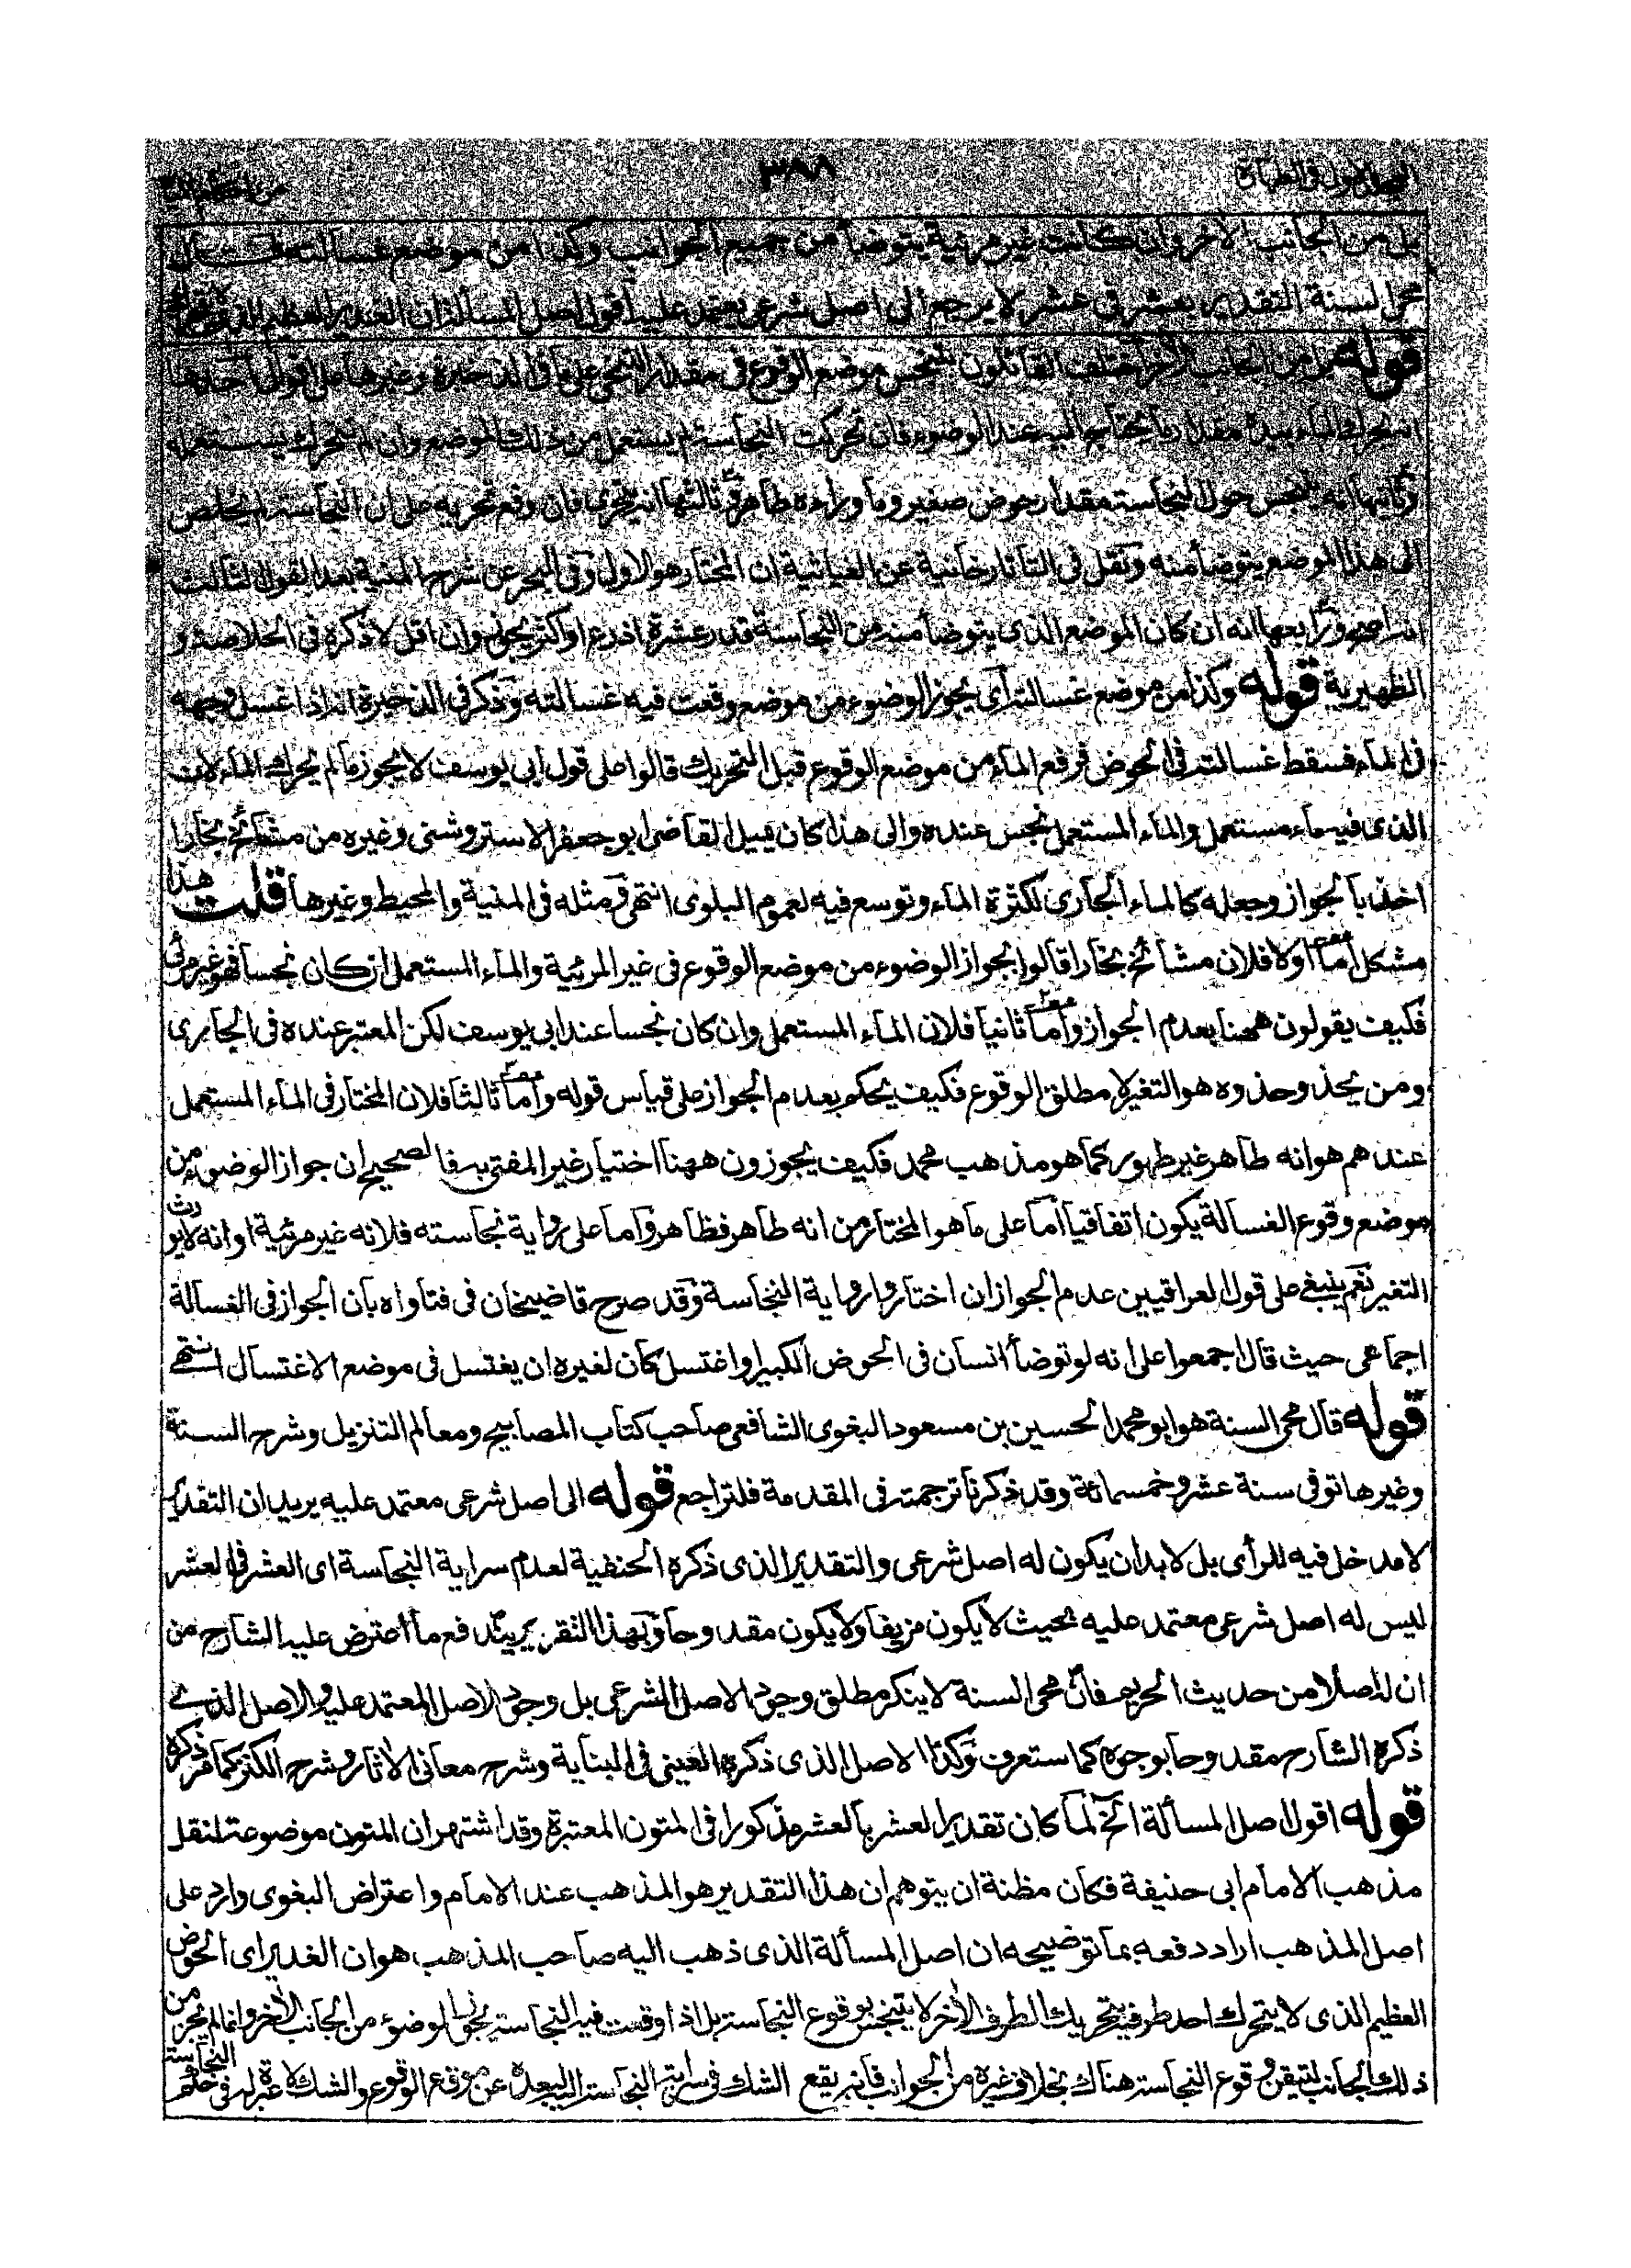 ٣٨٨
بل من الجانب الآخر وان كانت غير مرئية يتوضأ من جميع الجوانب وكذا من موضع غسالته قال
محي السنة التقدير بعشر في عشر لا يرجع الى اصل شرعي يعتمد عليه أقول اصل المسألة ان الغدير العظيم الذي
قوله بل من الجانب الآخر اختلف القائلون بتنجس موضع الوقوع في مقدار التنحي على ما في الذخيرة وغيرها على اقوال أحدها
انه يحرك الماء بيده مقدار ما يحتاج اليه عند الوضوء فان تحركت النجاسة لم يستعمل من ذلك الموضع وان لم تتحرك يستعمله
وثانيها انه يتنجس حول النجاسة مقدار حوض صغير وما وراءه طاهر وثالثها انه يتحرى فان وقع تحريه على ان النجاسة لم تخلص
الى هذا الموضع يتوضأ منه ونقل في التاتارخانية عن الغياثية ان المختار هو الاول وفي البحر عن شرح المنية بعد القول الثالث
انه اصح ورابعها انه ان كان الموضع الذي يتوضأ منه من النجاسة قدر عشرة اذرع او اكثر يجوز وان اقل لا ذكره في الخلاصة و
الظهيرية قوله وكذا من موضع غسالته اي يجوز الوضوء من موضع وقعت فيه غسالته وذكر في الذخيرة انه اذا غسل وجهه
في الماء فسقط غسالته في الحوض فرفع الماء من موضع الوقوع قبل التحريك قالوا على قول أبي يوسف لا يجوز ما لم يحرك الماء لان
الذي فيه ماء مستعمل والماء المستعمل نجس عنده والى هذا كان يميل القاضي ابو جعفر الاستروشني وغيره من مشائخ بخارا
اخذ بالجواز وجعله كالماء الجاري لكثرة الماء وتوسع فيه لعموم البلوى انتهى ومثله في المنية والمحيط وغيرها قلت هذا
مشكل أما اولا فلان مشائخ بخارا قالوا بجواز الوضوء من موضع الوقوع في غير المرئية والماء المستعمل ان كان نجسا فهو غير مرئي
فكيف يقولون ههنا بعدم الجواز وأما ثانيا فلان الماء المستعمل وان كان نجسا عند ابي يوسف لكن المعتبر عنده في الجاري
ومن يحذو حذوه هو التغير لا مطلق الوقوع فكيف يحكم بعدم الجواز على قياس قوله وأما ثالثا فلان المختار في الماء المستعمل
عندهم هو انه طاهر غير طهور كما هو مذهب محمد فكيف يجوزون ههنا اختيار غير المفتى به فالصحيح ان جواز الوضوء من
موضع وقوع الغسالة يكون اتفاقيا أما على ما هو المختار من انه طاهر فظاهر وأما على رواية نجاسته فلانه غير مرئية او انه لا يورث
التغير نعم ينبغي على قول العراقيين عدم الجواز ان اختاروا رواية النجاسة وقد صرح قاضيخان في فتاواه بان الجواز في الغسالة
اجماعي حيث قال اجمعوا على انه لو توضأ انسان في الحوض الكبير او اغتسل كان لغيره ان يغتسل في موضع الاغتسال انتهى
قوله قال محي السنة هو ابو محمد الحسين بن مسعود البغوي الشافعي صاحب كتاب المصابيح ومعالم التنزيل وشرح السنة
وغيرها توفي سنة عشر وخمسمائة وقد ذكرنا ترجمته في المقدمة فلتراجع قوله الى اصل شرعي معتمد عليه يريد ان التقدير
لا مدخل فيه للرأى بل لا بد ان يكون له اصل شرعي والتقدير الذي ذكره الحنفية لعدم سراية النجاسة اى العشر في العشر
ليس له اصل شرعي معتمد عليه بحيث لا يكون مزيفا ولا يكون مقدوحا وبهذا التقرير يندفع ما اعترض عليه الشارح من
ان له اصلا من حديث الحريم فان محي السنة لا ينكر مطلق وجود الاصل الشرعي بل وجود الاصل المعتمد عليه والاصل الذي
ذكره الشارح مقدوحا بوجوه كما ستعرف وكذا الاصل الذي ذكره العيني في البناية وشرح معاني الآثار وشرح الكنز كما مر ذكره
قوله اقول اصل المسألة الخ لما كان تقدير العشر بالعشر مذكورا في المتون المعتبرة وقد اشتهر ان المتون موضوعة لنقل
مذهب الامام ابي حنيفة فكان مظنة ان يتوهم ان هذا التقدير هو المذهب عند الامام واعتراض البغوي وارد على
اصل المذهب اراد دفعه بما توضيحه ان اصل المسألة الذي ذهب اليه صاحب المذهب هو ان الغدير اى الحوض
العظيم الذي لا يتحرك احد طرفيه بتحريك الطرف الآخر لا يتنجس بوقوع النجاسة بل اذا وقعت فيه النجاسة يجوز الوضوء من الجانب الآخر وانما لم يجز من
ذلك الجانب لتيقن وقوع النجاسة هناك بخلاف غيره من الجوانب فانه يقع الشك في سراية النجاسة اليه لبعده عن موقع الوقوع والشك لا عبرة له في حكم النجاسة